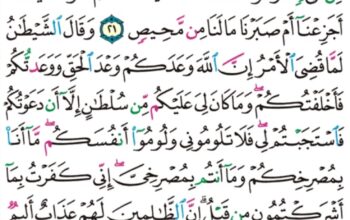 أَجَزِعْنَآ أَمْ صَبَرْنَا مَا لَنَا مِن مَّحِيصٍ ٢١ وَقَالَ ٱلشَّيْطَٰنُ
لَمَّا قُضِىَ ٱلْأَمْرُ إِنَّ ٱللَّهَ وَعَدَكُمْ وَعْدَ ٱلْحَقِّ وَوَعَدتُّكُمْ
فَأَخْلَفْتُكُمْ ۖ وَمَا كَانَ لِىَ عَلَيْكُم مِّن سُلْطَٰنٍ إِلَّآ أَن دَعَوْتُكُمْ
فَٱسْتَجَبْتُمْ لِى ۖ فَلَا تَلُومُونِى وَلُومُوٓا۟ أَنفُسَكُم ۖ مَّآ أَنَا۠
بِمُصْرِخِكُمْ وَمَآ أَنتُم بِمُصْرِخِىَّ ۖ إِنِّى كَفَرْتُ بِمَآ
أَشْرَكْتُمُونِ مِن قَبْلُ ۗ إِنَّ ٱلظَّٰلِمِينَ لَهُمْ عَذَابٌ أَلِيمٌ